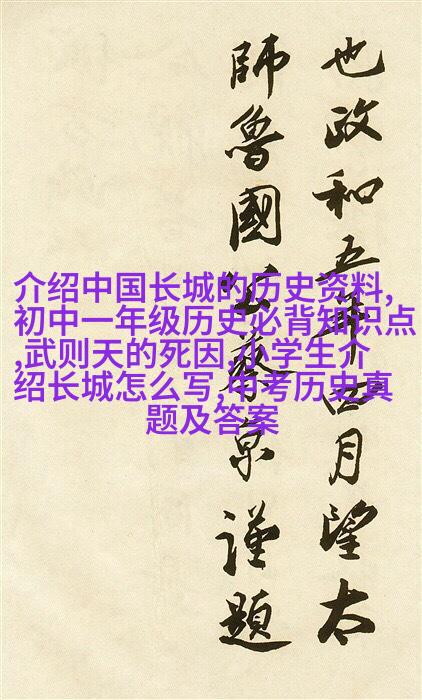 介绍中国长城的历史资料,
初中一年级历史必背知识点
,武则天的死因,小学生介
绍长城怎么写,中考历史真
题及答案
也政和五年四月望太
師魯國公蔡京謹題